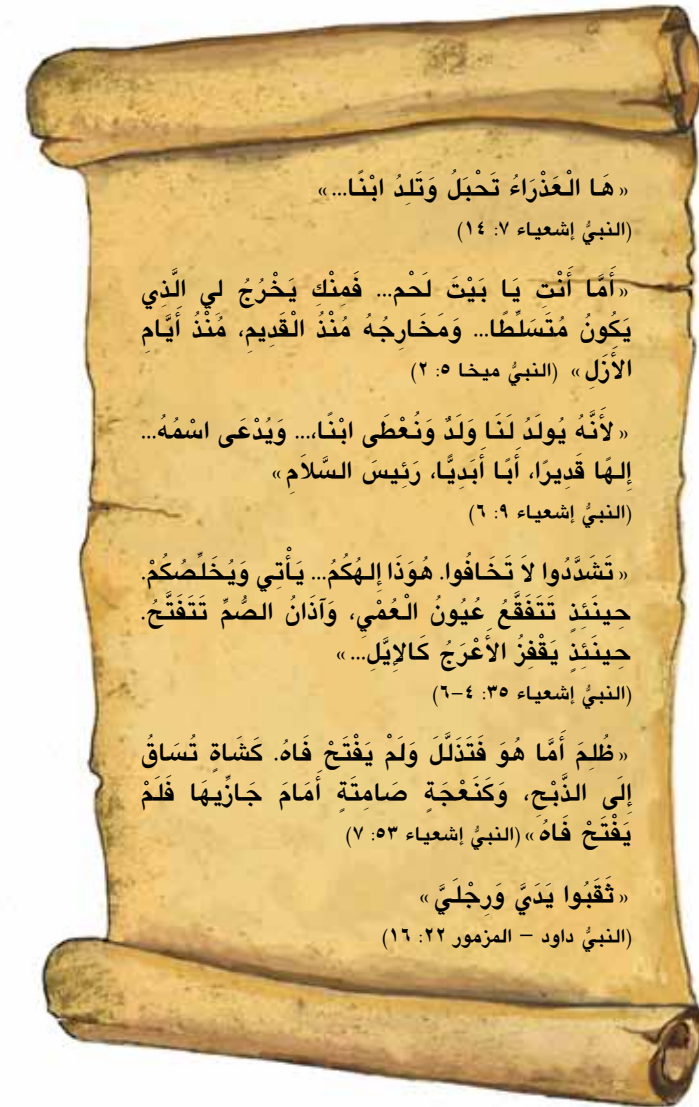 «هَا الْعَذْرَاءُ تَحْبَلُ وَتَلِدُ ابْنًا...»
(النبيُّ إشعياء ٧: ١٤)
«أَمَّا أَنْتِ يَا بَيْتَ لَحْمِ... فَمِنْكِ يَخْرُجُ لِي الَّذِي
يَكُونُ مُتَسَلِّطًا... وَمَخَارِجُهُ مُنْذُ الْقَدِيمِ، مُنْذُ أَيَّامِ
الأَزَلِ» (النبيُّ ميخا ٥: ٢)
«لأَنَّهُ يُولَدُ لَنَا وَلَدٌ وَنُعْطَى ابْنًا،... وَيُدْعَى اسْمُهُ...
إِلهًا قَدِيرًا، أَبًا أَبَدِيًّا، رَئِيسَ السَّلاَمِ»
(النبيُّ إشعياء ٩: ٦)
«تَشَدَّدُوا لاَ تَخَافُوا. هُوَذَا إِلهُكُمُ... يَأْتِي وَيُخَلِّصُكُمْ.
حِينَئِذٍ تَتَفَقَّعُ عُيُونُ الْعُمْيِ، وَآذَانُ الصُّمِّ تَتَفَتَّحُ.
حِينَئِذٍ يَقْفِزُ الأَعْرَجُ كَالإِيَّلِ...»
(النبيُّ إشعياء ٣٥: ٤-٦)
«ظُلِمَ أَمَّا هُوَ فَتَذَلَّلَ وَلَمْ يَفْتَحْ فَاهُ. كَشَاةٍ تُسَاقُ
إِلَى الذَّبْحِ، وَكَنَعْجَةٍ صَامِتَةٍ أَمَامَ جَازِّيهَا فَلَمْ
يَفْتَحْ فَاهُ» (النبيُّ إشعياء ٥٣: ٧)
«ثَقَبُوا يَدَيَّ وَرِجْلَيَّ»
(النبيُّ داود – المزمور ٢٢: ١٦)